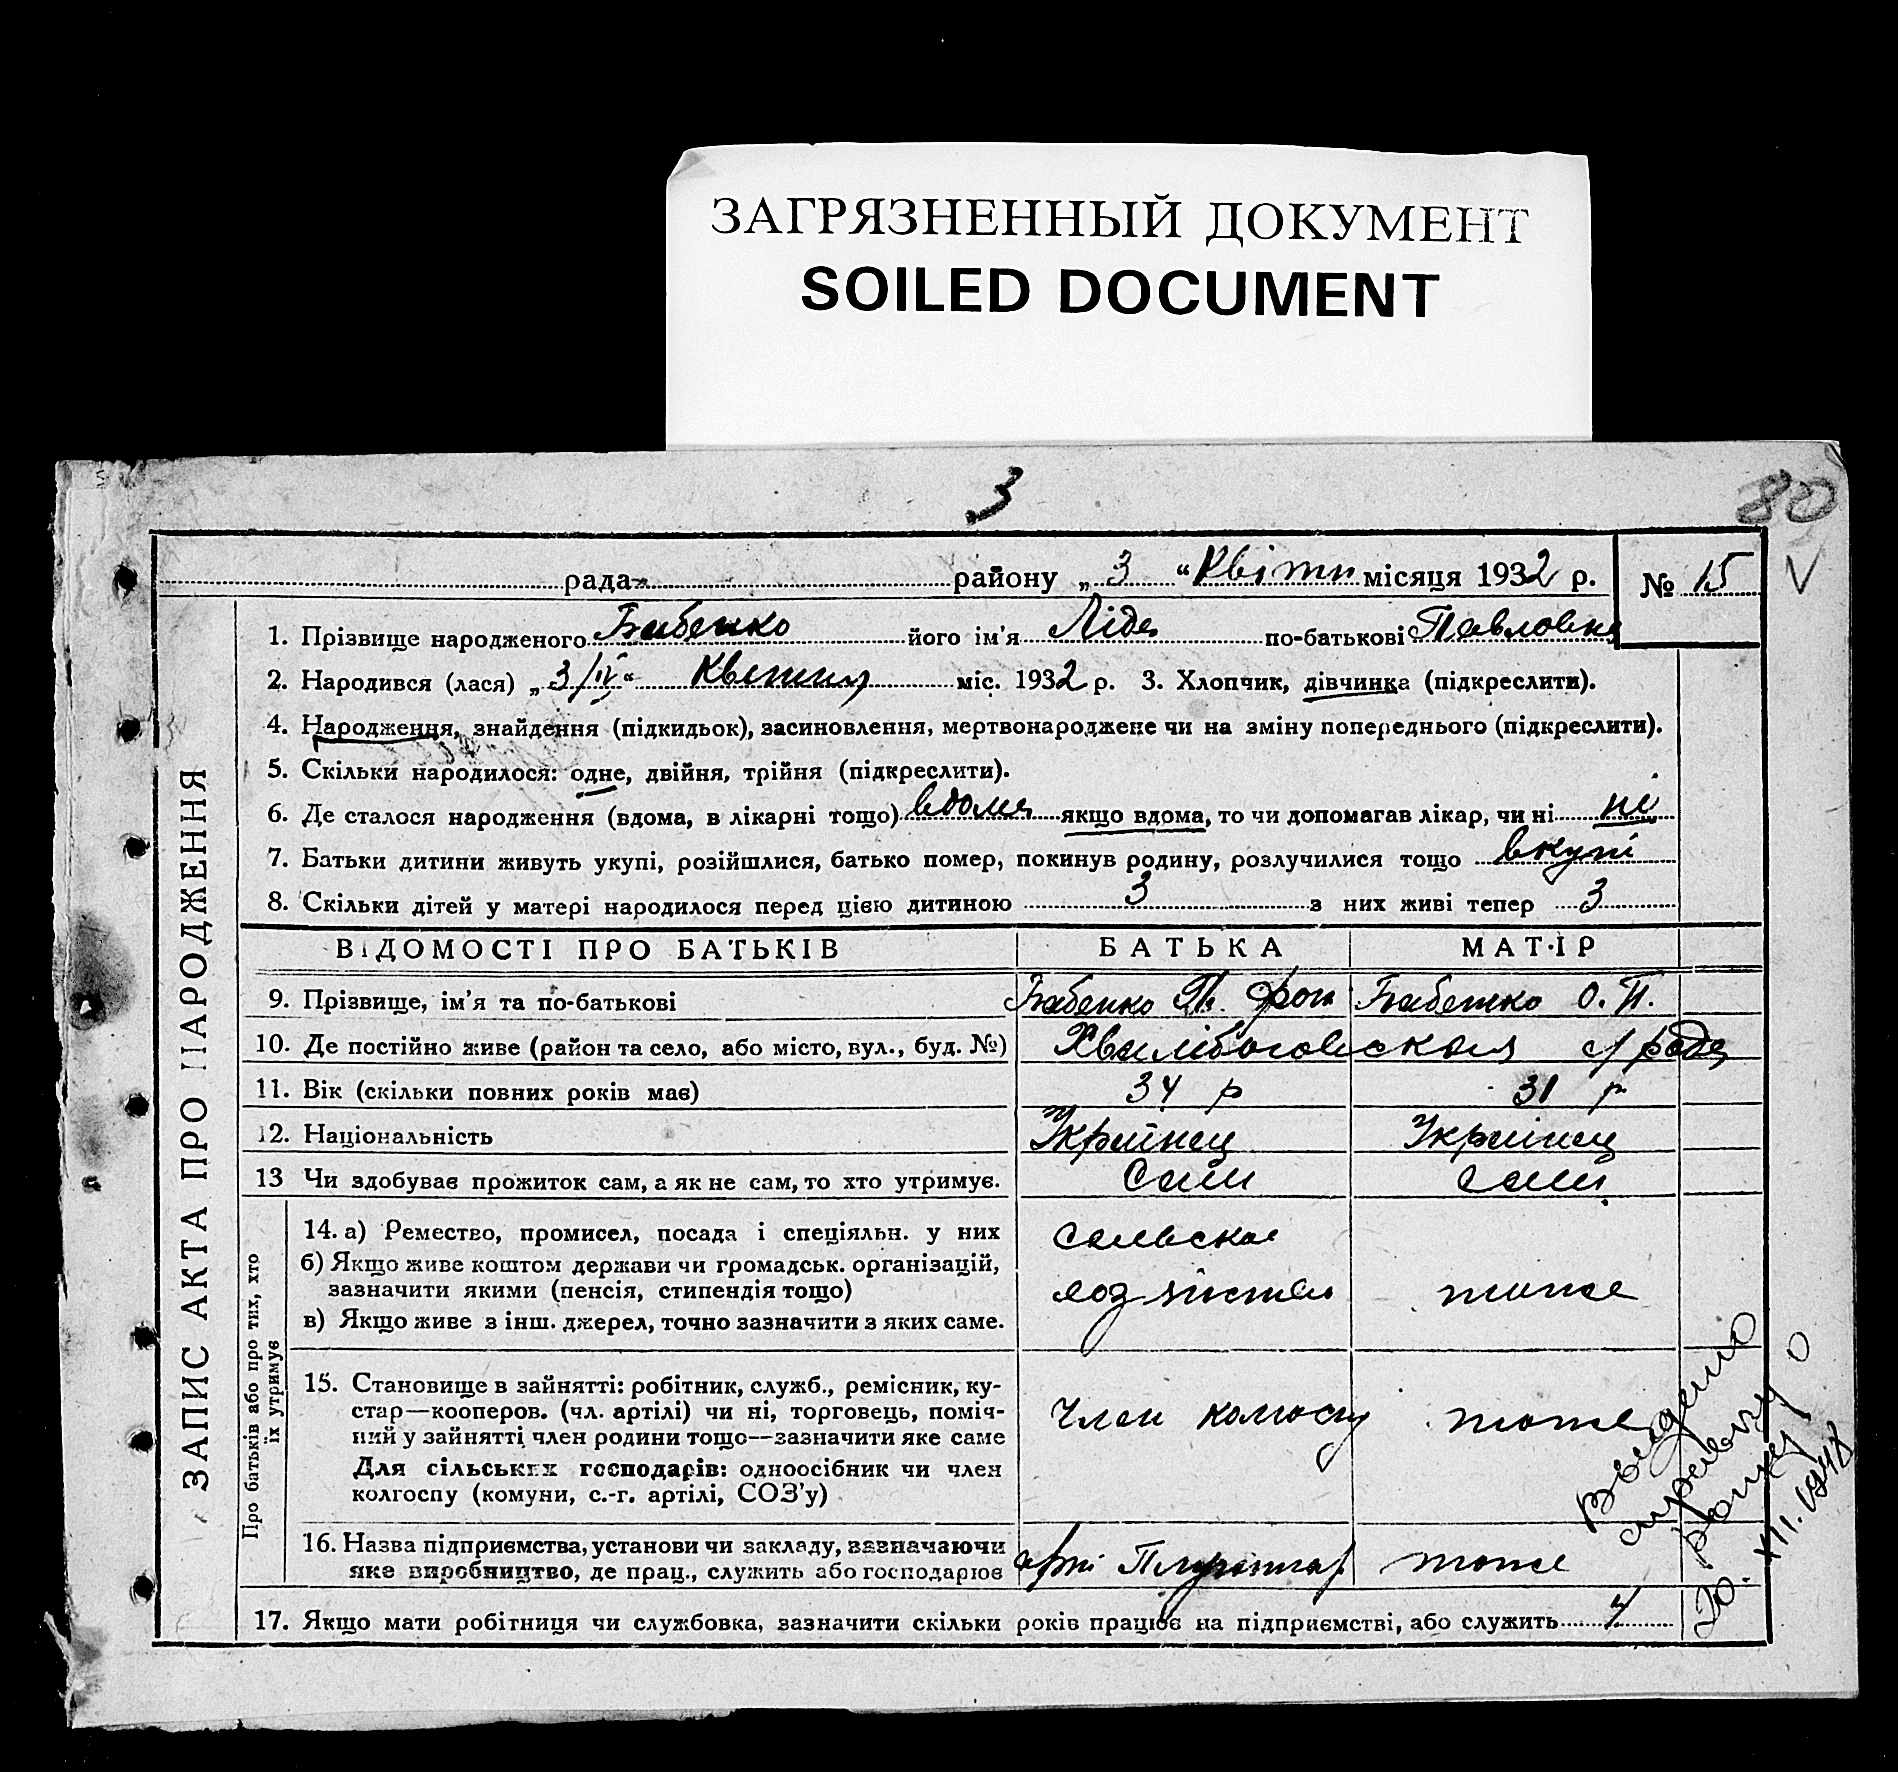 ЗАГРЯЗНЕННЫЙ ДОКУМЕНТ
SOILED DOCUMENT
3
80
рада района „ 3 “ Квітн місяця 1932 р. № 15 V
ЗАПИС АКТА ПРО НАРОДЖЕННЯ
1. Прізвище народженого Бабенко його ім'я Ліда по-батькові Павловна
2. Народився (лася) „ 3/IV “ Квітня міс. 1932 р. 3. Хлопчик, дівчинка (підкреслити).
4. Народження, знайдення (підкидьок), засиновлення, мертвонароджене чи на зміну попереднього (підкреслити).
5. Скільки народилося: одне, двійня, трійня (підкреслити).
6. Де сталося народження (вдома, в лікарні тощо) вдома якщо вдома, то чи допомагав лікар, чи ні ні
7. Батьки дитини живуть укупі, розійшлися, батько помер, покинув родину, розлучилися тощо вкупі
8. Скільки дітей у матері народилося перед цією дитиною 3 з них живі тепер 3
ВІДОМОСТІ ПРО БАТЬКІВ БАТЬКА МАТІР
9. Прізвище, ім'я та по-батькові Бабенко П. Бабенко О. П.
10. Де постійно живе (район та село, або місто, вул., буд. №) с/рада
11. Вік (скільки повних років має) 34 р 31 р
12. Національність Україинец Україинец
13 Чи здобуває прожиток сам, а як не сам, то хто утримує. Сам Сам
Про батьків або про тих, хто
їх утримує
14. а) Ремество, промисел, посада і спеціяльн. у них сельское
б) Якщо живе коштом держави чи громадськ. організацій,
зазначити якими (пенсія, стипендія тощо) тоже
в) Якщо живе з інш. джерел, точно зазначити з яких саме.
15. Становище в зайнятті: робітник, служб., ремісник, ку-
стар—кооперов. (чл. артілі) чи ні, торговець, поміч- Член колгоспу тоже
ний у зайнятті член родини тощо—зазначити яке саме
Для сільських господарів: одноосібник чи член
колгоспу (комуни, с.-г. артілі, СОЗ'у)
16. Назва підприємства, установи чи закладу, зазначаючи
яке виробництво, де прац., служить або господарює арт тоже
17. Якщо мати робітниця чи службовка, зазначити скільки років працює на підприємстві, або служить
Видено
справку о
20. XII. 1948